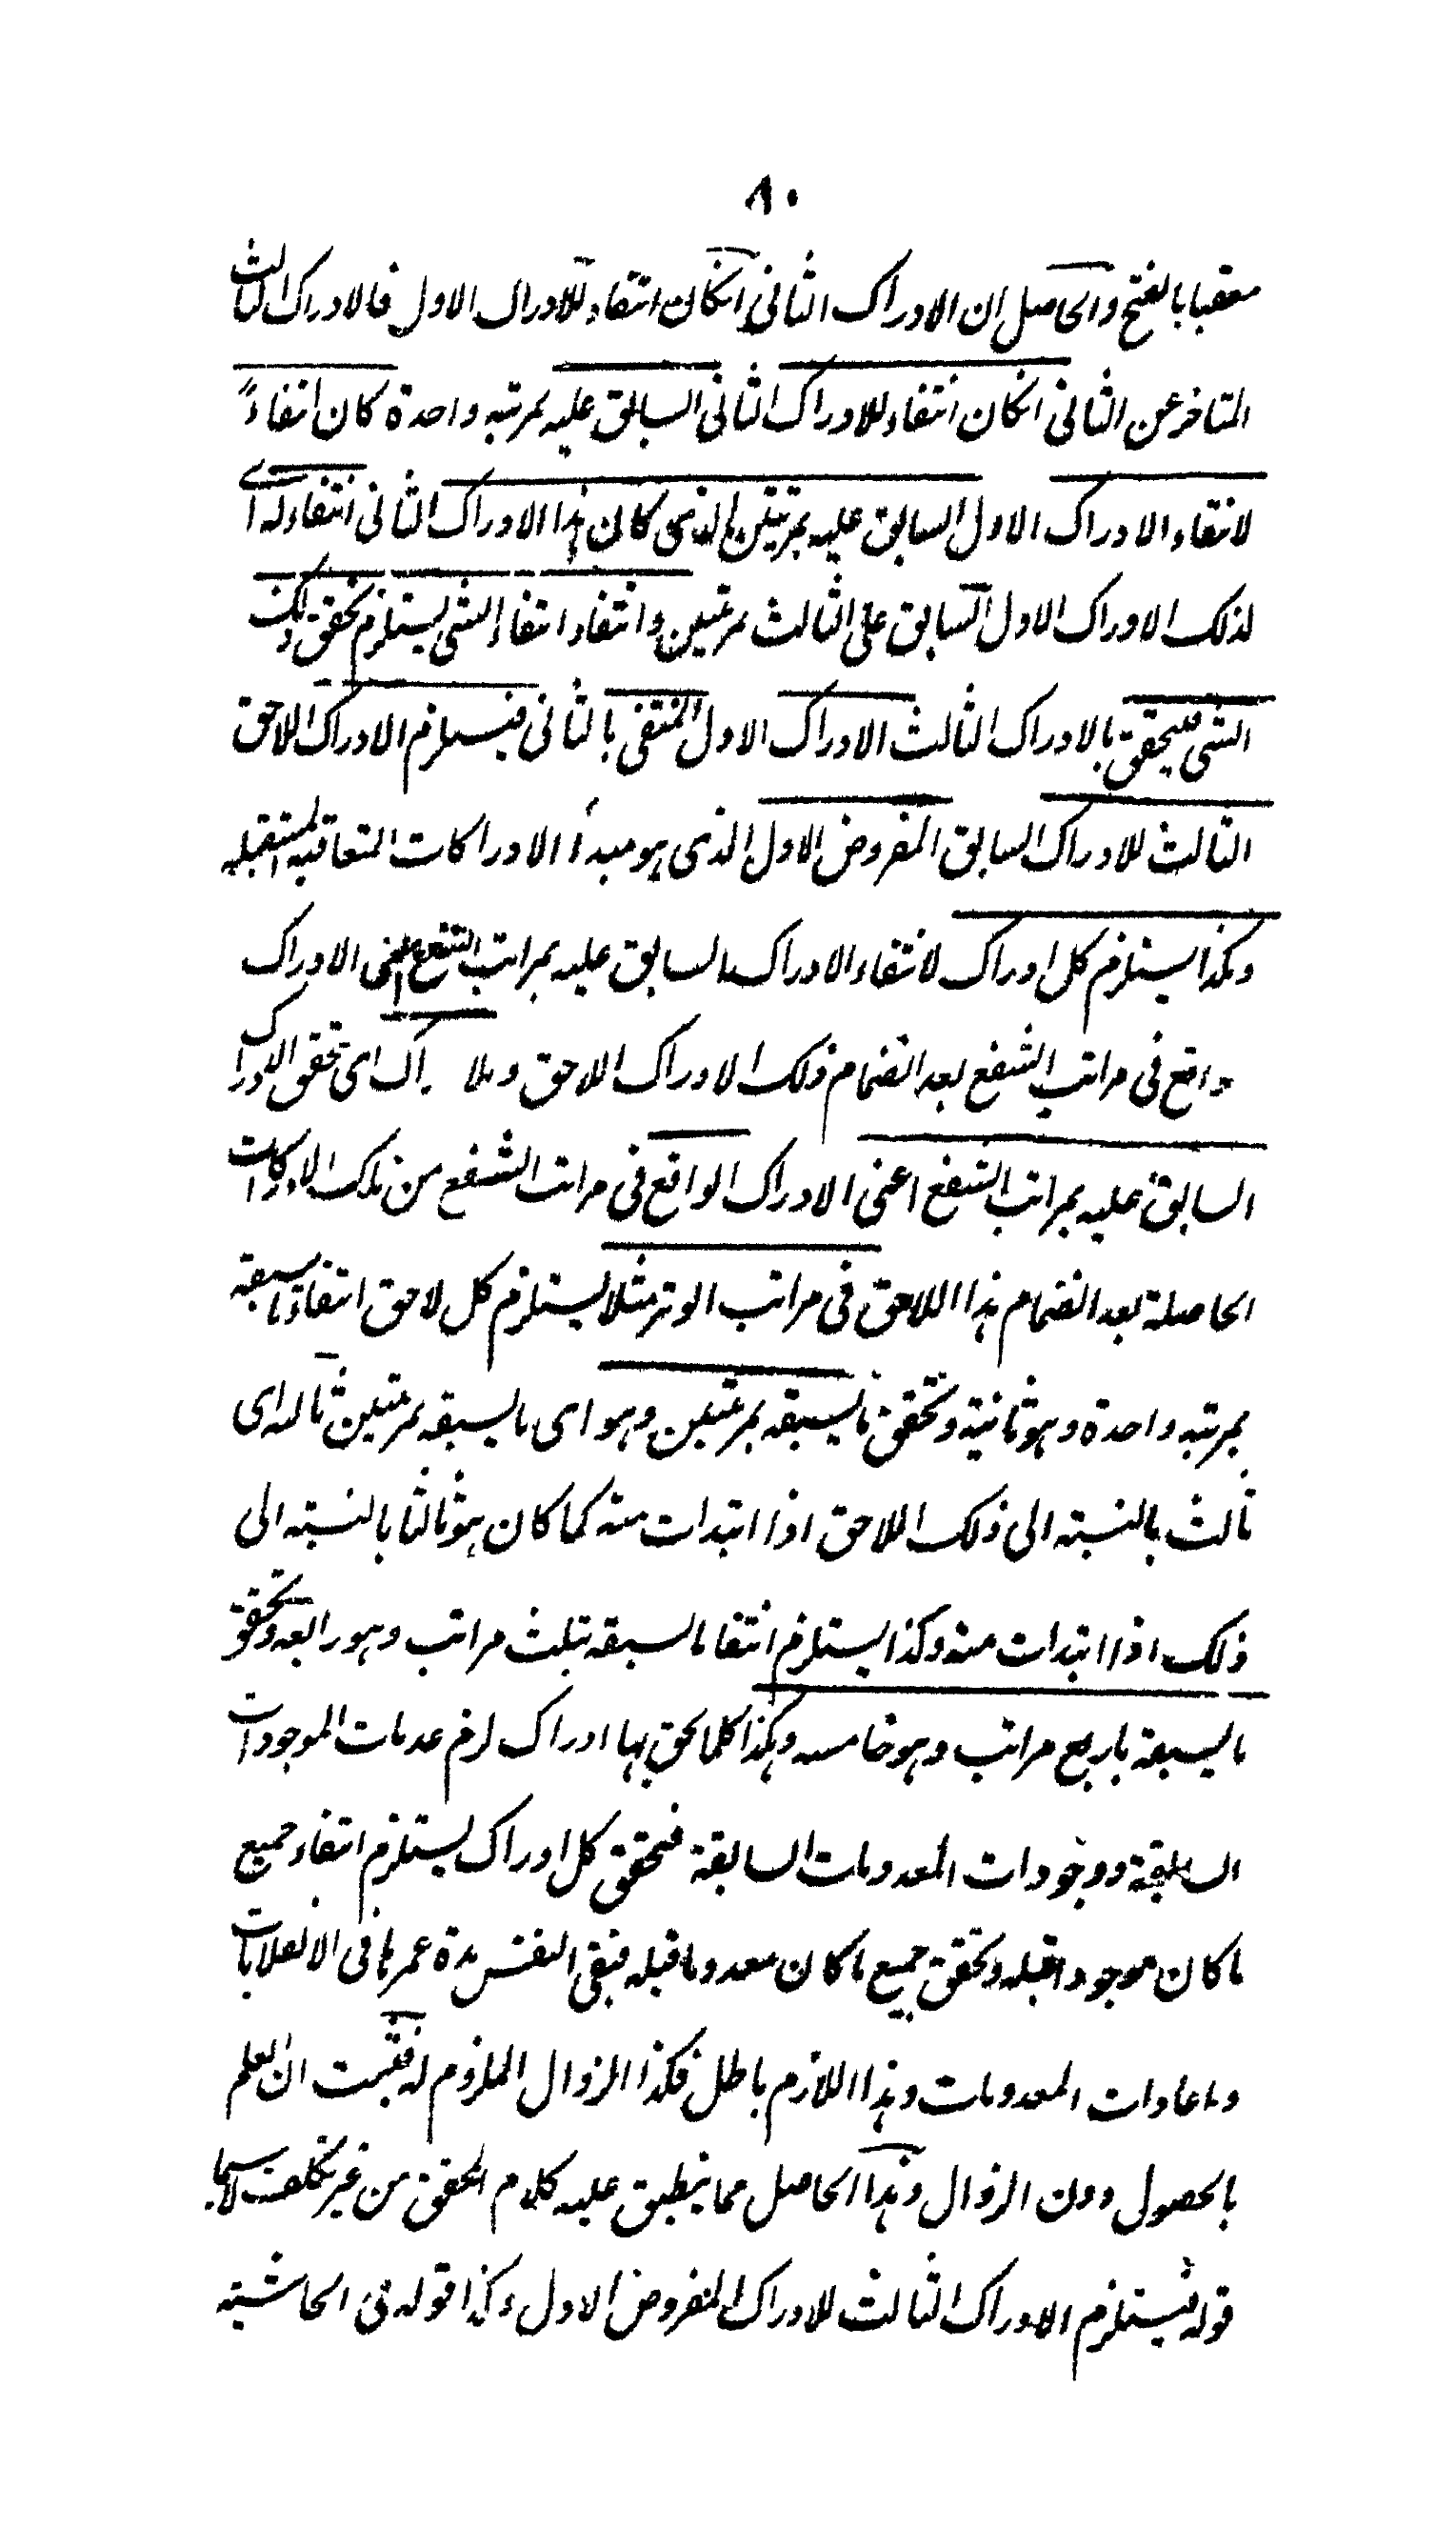 ٨٠
معقبا بالفتح والحاصل ان الادراك الثاني انكان انتفاء للادراك الاول فالادراك الثالث
المتاخر عن الثاني انكان انتفاء للادراك الثاني السابق عليه بمرتبه واحدة كان انتفاءً
لانتفاء الادراك الاول السابق عليه بمرتبتين الذي كان هذا الادراك الثاني انتفاء له اى
لذلك الادراك الاول السابق على الثالث بمرتبتين وانتفاء انتفاء الشى يستلزم تحقق ذلك
الشى فيتحقق بالادراك الثالث الادراك الاول المنتفى بالثاني فيستلزم الادراك اللاحق
الثالث للادراك السابق المفروض الاول الذى هو مبدأ الادراكات المتعاقبه المستقبله
وهكذا يستلزم كل ادراك لانتفاء الادراك السابق عليه بمراتب الشفع اعنى الادراك
واقع فى مراتب الشفع بعد انضمام ذلك الادراك اللاحق و اى تحقق الادراك
السابق عليه بمراتب الشفع اعنى الادراك الواقع فى مراتب الشفع من تلك الادراكات
الحاصلة بعد انضمام هذا اللاحق فى مراتب الوتر مثلا يستلزم كل لاحق انتفاء ما يسبقه
بمرتبه واحدة وهو ثانية وتحقق ما يسبقه بمرتبتين وهو اى ما يسبقه بمرتبتين ثالثه اى
ثالث بالنسبته الى ذلك اللاحق اذا ابتدات منه كما كان هو ثالثا بالنسبته الى
ذلك اذا ابتدات منه وكذا يستلزم انتفا ما يسبقه بثلث مراتب وهو رابعه وتحقق
ما يسبقه باربع مراتب وهو خامسه وهكذا كلما لحق بها ادراك لزم عدمات الموجودات
السابقة ووجودات المعدومات السابقة فتحقق كل ادراك يستلزم انتفاء جميع
ما كان موجودا قبله وتحقق جميع ما كان معدوما قبله فتبقى النفس مدة عمرها فى الانقلابات
واعادات المعدومات وهذا اللازم باطل فكذا الزوال الملزوم له فثبت ان العلم
بالحصول دون الزوال وهذا الحاصل مما ينطبق عليه كلام المحقق من غير تكلف لاسيما
قوله فيستلزم الادراك الثالث للادراك المفروض الاول وكذا قوله فى الحاشيته